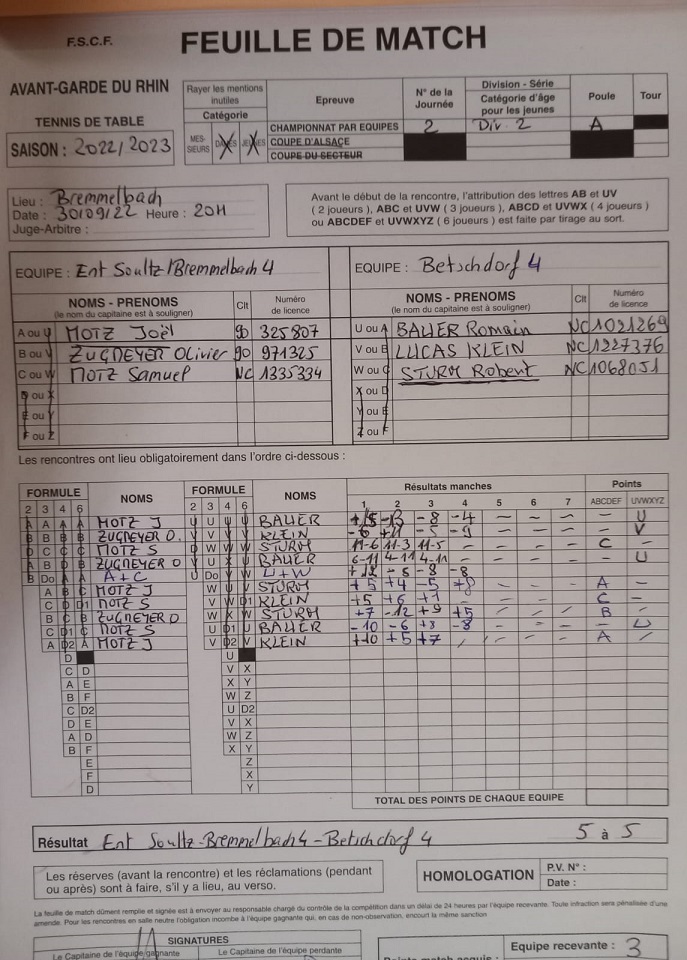 F.S.C.F. FEUILLE DE MATCH
AVANT-GARDE DU RHIN
TENNIS DE TABLE
SAISON : 2022/2023
Rayer les mentions inutiles
Catégorie
MES-SIEURS DAMES JEUNES
Epreuve
CHAMPIONNAT PAR EQUIPES
COUPE D'ALSACE
COUPE DU SECTEUR
N° de la Journée
2
Division - Série
Catégorie d'âge pour les jeunes
Div. 2
Poule
A
Tour
Lieu : Bremmelbach
Date : 30/09/22 Heure : 20H
Juge-Arbitre :
Avant le début de la rencontre, l'attribution des lettres AB et UV
( 2 joueurs ), ABC et UVW ( 3 joueurs ), ABCD et UVWX ( 4 joueurs )
ou ABCDEF et UVWXYZ ( 6 joueurs ) est faite par tirage au sort.
EQUIPE : Ent Soultz/Bremmelbach 4
NOMS - PRENOMS (le nom du capitaine est à souligner) Clt Numéro de licence
A ou U MOTZ Joël 90 325807
B ou V ZUGMEYER Olivier 90 971325
C ou W MOTZ Samuel NC 1335334
D ou X
E ou Y
F ou Z
EQUIPE : Betschdorf 4
NOMS - PRENOMS (le nom du capitaine est à souligner) Clt Numéro de licence
U ou A BAUER Romain NC 1021269
V ou B LUCAS KLEIN NC 1227376
W ou C STURM Robert NC 1068051
X ou D
Y ou E
Z ou F
Les rencontres ont lieu obligatoirement dans l'ordre ci-dessous :
FORMULE NOMS FORMULE NOMS Résultats manches Points
2 3 4 6 2 3 4 6 1 2 3 4 5 6 7 ABCDEF UVWXYZ
A A A A MOTZ J U U U U BAUER -13 -8 -4 — — — — U
B B B B ZUGMEYER O. V V V V KLEIN -6 -9 — — — — V
D C C C MOTZ S U W W W STURM 11-6 11-3 11-5 — — — — C —
A B D B ZUGMEYER O V U X U BAUER 6-11 4-11 4-11 — — — — — U
B Do A A A + C U Do V U U+W -8 -8 -8
A B C MOTZ J W U W STURM +5 +4 -5 +8 — — — A —
C D D1 MOTZ S V W D1 KLEIN +5 +6 +1 — — — — C —
B C B ZUGMEYER O W X W STURM +7 -12 +9 +5 B
C D1 C MOTZ S U D1 U BAUER -10 -6 +3 -8 — — — — U
A D2 A MOTZ J V D2 V KLEIN +10 +5 +7 A
D U
C D V X
A E X Y
B F W Z
C D2 U D2
D E V X
A D W Z
B F X Y
E Z
F X
D Y
TOTAL DES POINTS DE CHAQUE EQUIPE
Résultat Ent Soultz-Bremmelbach 4 - Betschdorf 4 5 à 5
Les réserves (avant la rencontre) et les réclamations (pendant
ou après) sont à faire, s'il y a lieu, au verso.
HOMOLOGATION
P.V. N° :
Date :
La feuille de match dûment remplie et signée est à envoyer au responsable chargé du contrôle de la compétition dans un délai de 24 heures par l'équipe recevante. Toute infraction sera pénalisée d'une
amende. Pour les rencontres en salle neutre l'obligation incombe à l'équipe gagnante qui, en cas de non-observation, encourt la même sanction
SIGNATURES
Le Capitaine de l'équipe gagnante Le Capitaine de l'équipe perdante
Equipe recevante : 3